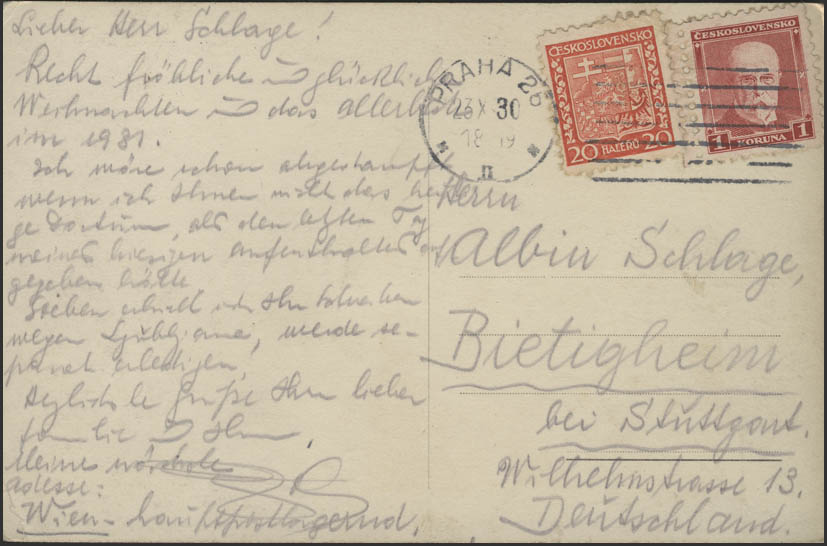 Lieber Herr Schlage!
Recht fröhliche u glückliche
Weihnachten u das allerbeste
im 1931.
Ich wäre schon abgestumpft
wenn ich Ihnen nicht das heuti-
ge Dortum, als den letzten Tag
meines hiesigen Aufenthaltes
gegeben hätte.
Soeben erhielt ich Ihr Schreiben
wegen Ljubljana, werde se-
parat erledigen,
Herzliche Grüße Ihrer lieben
Familie u Ihnen
Meine
Adresse:
Wien - hauptpostlagernd.
PRAHA 25
23 X 30
18 19
II
ČESKOSLOVENSKO
20 HALÉŘŮ 20
ČESKOSLOVENSKO
1 KORUNA 1
Herrn
Albin Schlage,
Bietigheim
bei Stuttgart.
Wilhelmstrasse 13.
Deutschland.